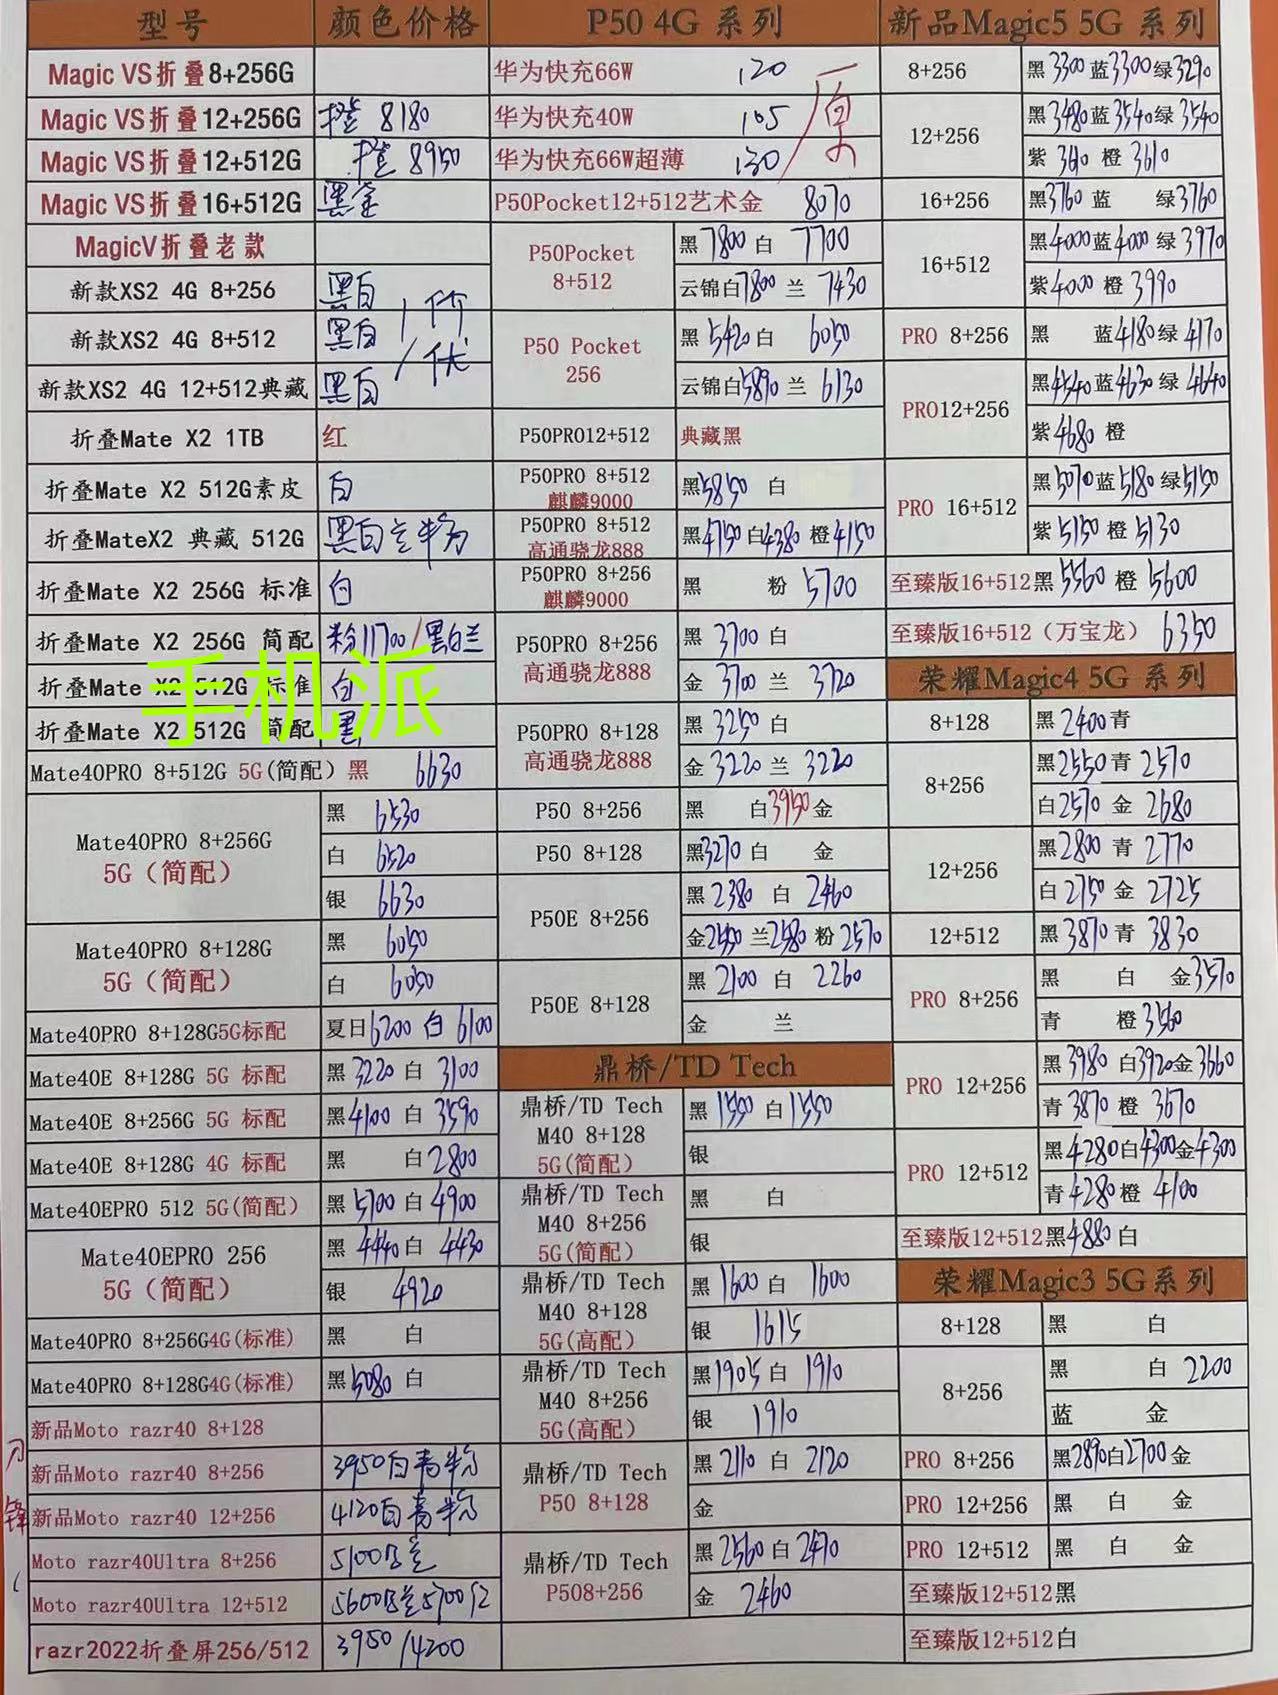 型号 颜色价格
Magic VS折叠8+256G
Magic VS折叠12+256G 橙 8180
Magic VS折叠12+512G 橙 8950
Magic VS折叠16+512G 黑金
MagicV折叠老款
新款XS2 4G 8+256 黑白
新款XS2 4G 8+512 黑白
新款XS2 4G 12+512典藏 黑白
折叠Mate X2 1TB 红
折叠Mate X2 512G素皮 白
折叠MateX2 典藏 512G 黑白兰粉
折叠Mate X2 256G 标准 白
折叠Mate X2 256G 简配 粉11700/黑白兰
折叠Mate X2 512G 标准 白
手机派
折叠Mate X2 512G 简配 黑
Mate40PRO 8+512G 5G(简配) 黑 6630
Mate40PRO 8+256G
5G（简配）
黑 6530
白 6520
银 6630
Mate40PRO 8+128G
5G（简配）
黑 6050
白 6050
Mate40PRO 8+128G5G标配 夏日6200 白 6100
Mate40E 8+128G 5G 标配 黑 3220 白 3100
Mate40E 8+256G 5G 标配 黑4100 白 3590
Mate40E 8+128G 4G 标配 黑 白2800
Mate40EPRO 512 5G(简配) 黑 5700 白 4900
Mate40EPRO 256
5G（简配）
黑 4440白 4430
银 4920
Mate40PRO 8+256G4G(标准) 黑 白
Mate40PRO 8+128G4G(标准) 黑5080 白
新品Moto razr40 8+128
新品Moto razr40 8+256 3950白青粉
新品Moto razr40 12+256 4120白青粉
Moto razr40Ultra 8+256 5100
Moto razr40Ultra 12+512 5600
razr2022折叠屏256/512 3950/4200
P50 4G 系列
华为快充66W 120
华为快充40W 105
华为快充66W超薄 130
原
P50Pocket12+512艺术金 8070
P50Pocket
8+512
黑7800 白 7700
云锦白7800 兰 7430
P50 Pocket
256
黑 5420 白 6050
云锦白5890 兰 6130
P50PRO12+512 典藏黑
P50PRO 8+512
麒麟9000
黑5850 白
P50PRO 8+512
高通骁龙888
黑4750 白4380 橙4150
P50PRO 8+256
麒麟9000
黑 粉 5700
P50PRO 8+256
高通骁龙888
黑 3700 白
金 3700 兰 3720
P50PRO 8+128
高通骁龙888
黑 3250 白
金 3220 兰 3220
P50 8+256 黑 白3950金
P50 8+128 黑3270 白 金
P50E 8+256
黑 2380 白 2460
金2550 兰2580 粉 2570
P50E 8+128
黑 2100 白 2260
金 兰
鼎桥/TD Tech
鼎桥/TD Tech
M40 8+128
5G(简配)
黑 1550 白1550
银
鼎桥/TD Tech
M40 8+256
5G(简配)
黑 白
银
鼎桥/TD Tech
M40 8+128
5G(高配)
黑 1600 白 1600
银 1615
鼎桥/TD Tech
M40 8+256
5G(高配)
黑1905 白 1910
银 1910
鼎桥/TD Tech
P50 8+128
黑 2110 白 2120
金
鼎桥/TD Tech
P508+256
黑 2560 白 2470
金 2460
新品Magic5 5G 系列
8+256 黑 3300 蓝3300绿3290
12+256
黑3480蓝3540绿 3540
紫 3610 橙 3610
16+256 黑3760 蓝 绿3760
16+512
黑4000蓝4000 绿 3970
紫4000 橙 3990
PRO 8+256 黑 蓝4180绿 4170
PRO12+256
黑4540蓝4630 绿 4640
紫4680 橙
PRO 16+512
黑5070蓝5180绿5150
紫 5150 橙 5130
至臻版16+512黑 5560 橙 5600
至臻版16+512（万宝龙） 6350
荣耀Magic4 5G 系列
8+128 黑 2400青
8+256
黑2550青 2570
白2570 金 2680
12+256
黑2800 青 2770
白 2750 金 2725
12+512 黑 3870 青 3830
PRO 8+256
黑 白 金3570
青 橙3560
PRO 12+256
黑 3980 白3920金3660
青 3870 橙 3670
PRO 12+512
黑 4280白4300金4300
青 4280橙 4100
至臻版12+512黑4880 白
荣耀Magic3 5G系列
8+128 黑 白
8+256
黑 白 2200
蓝 金
PRO 8+256 黑2890白2700 金
PRO 12+256 黑 白 金
PRO 12+512 黑 白 金
至臻版12+512黑
至臻版12+512白